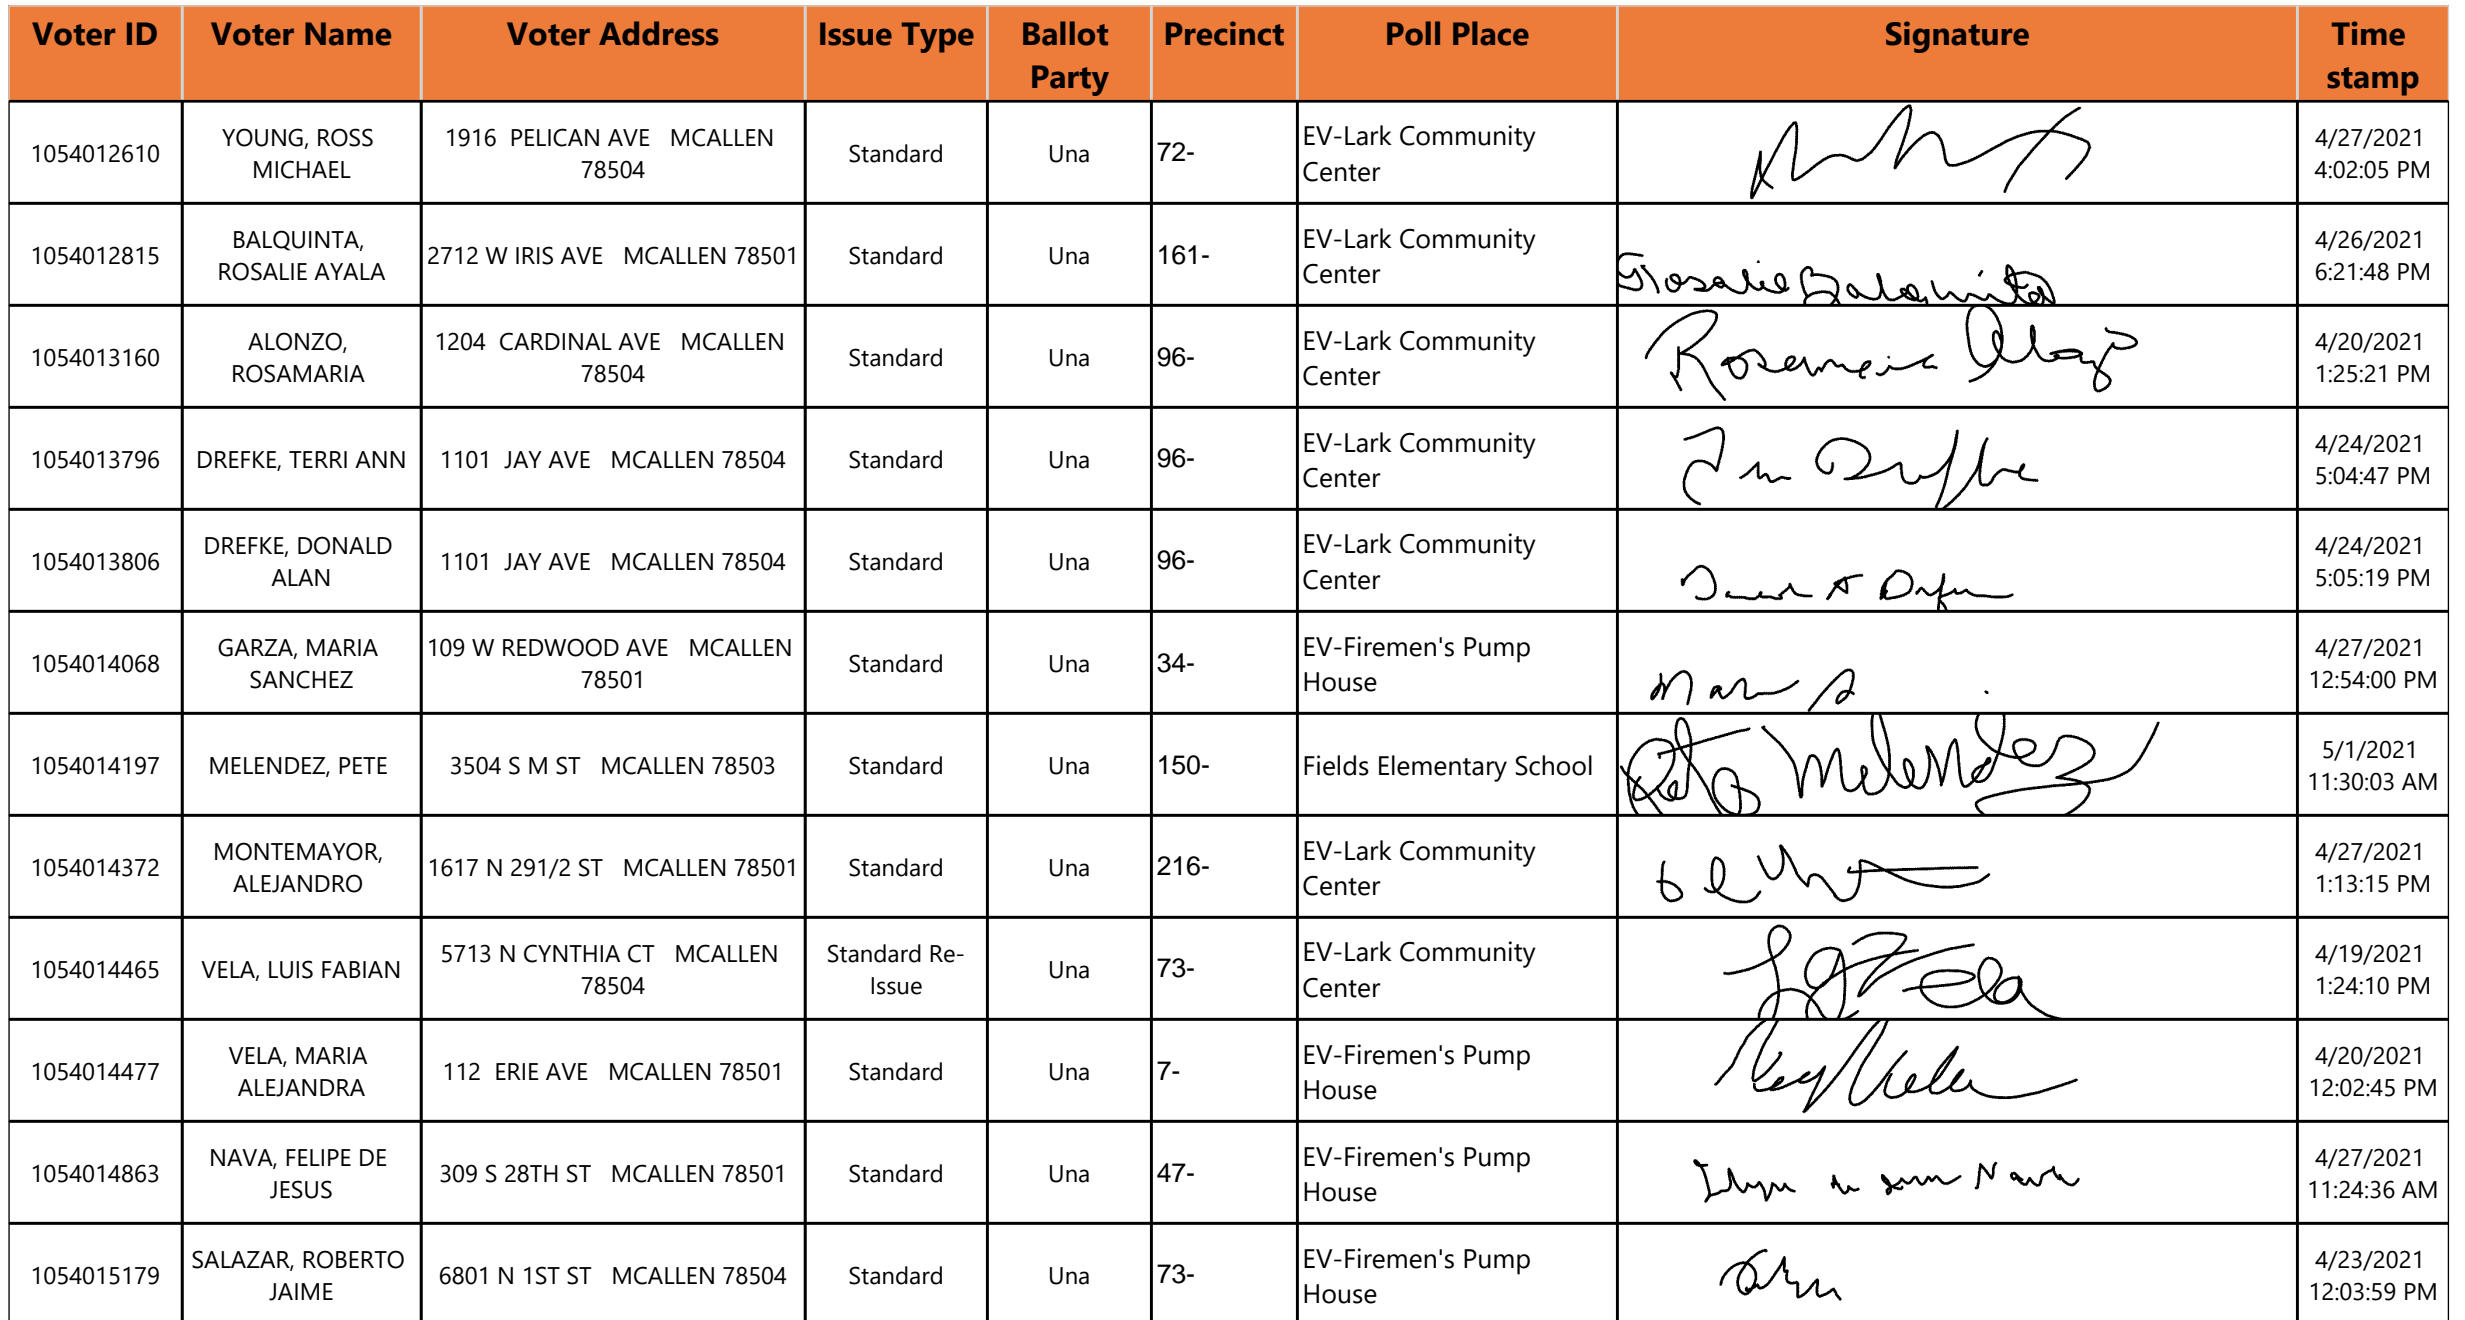 Voter ID Voter Name Voter Address Issue Type Ballot Party Precinct Poll Place Signature Time stamp
1054012610 YOUNG, ROSS MICHAEL 1916 PELICAN AVE MCALLEN 78504 Standard Una 72- EV-Lark Community Center 4/27/2021 4:02:05 PM
1054012815 BALQUINTA, ROSALIE AYALA 2712 W IRIS AVE MCALLEN 78501 Standard Una 161- EV-Lark Community Center Rosalie Balquinta 4/26/2021 6:21:48 PM
1054013160 ALONZO, ROSAMARIA 1204 CARDINAL AVE MCALLEN 78504 Standard Una 96- EV-Lark Community Center Rosamaria 4/20/2021 1:25:21 PM
1054013796 DREFKE, TERRI ANN 1101 JAY AVE MCALLEN 78504 Standard Una 96- EV-Lark Community Center 4/24/2021 5:04:47 PM
1054013806 DREFKE, DONALD ALAN 1101 JAY AVE MCALLEN 78504 Standard Una 96- EV-Lark Community Center 4/24/2021 5:05:19 PM
1054014068 GARZA, MARIA SANCHEZ 109 W REDWOOD AVE MCALLEN 78501 Standard Una 34- EV-Firemen's Pump House 4/27/2021 12:54:00 PM
1054014197 MELENDEZ, PETE 3504 S M ST MCALLEN 78503 Standard Una 150- Fields Elementary School Pete Melendez 5/1/2021 11:30:03 AM
1054014372 MONTEMAYOR, ALEJANDRO 1617 N 291/2 ST MCALLEN 78501 Standard Una 216- EV-Lark Community Center 4/27/2021 1:13:15 PM
1054014465 VELA, LUIS FABIAN 5713 N CYNTHIA CT MCALLEN 78504 Standard Re-Issue Una 73- EV-Lark Community Center Vela 4/19/2021 1:24:10 PM
1054014477 VELA, MARIA ALEJANDRA 112 ERIE AVE MCALLEN 78501 Standard Una 7- EV-Firemen's Pump House 4/20/2021 12:02:45 PM
1054014863 NAVA, FELIPE DE JESUS 309 S 28TH ST MCALLEN 78501 Standard Una 47- EV-Firemen's Pump House Nava 4/27/2021 11:24:36 AM
1054015179 SALAZAR, ROBERTO JAIME 6801 N 1ST ST MCALLEN 78504 Standard Una 73- EV-Firemen's Pump House 4/23/2021 12:03:59 PM